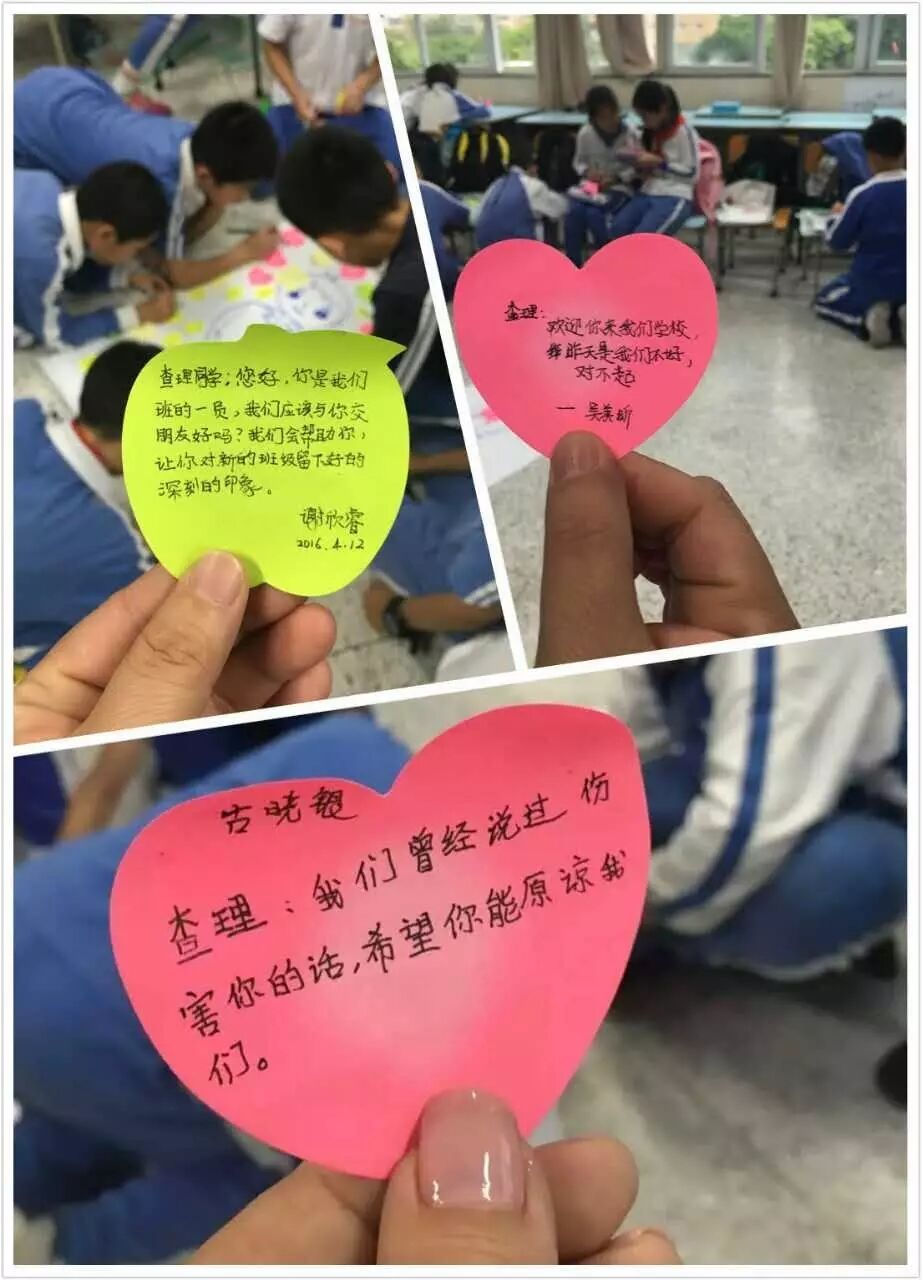 查理同学：您好，你是我们
班的一员，我们应该与你交
朋友好吗？我们会帮助你，
让你对新的班级留下好的
深刻的印象。
谢欣睿
2016.4.12
查理：
欢迎你来我们学校，
昨天是我们不好，
对不起
— 吴美昕
古晓
查理：我们曾经说过伤
害你的话，希望你能原谅我
们。